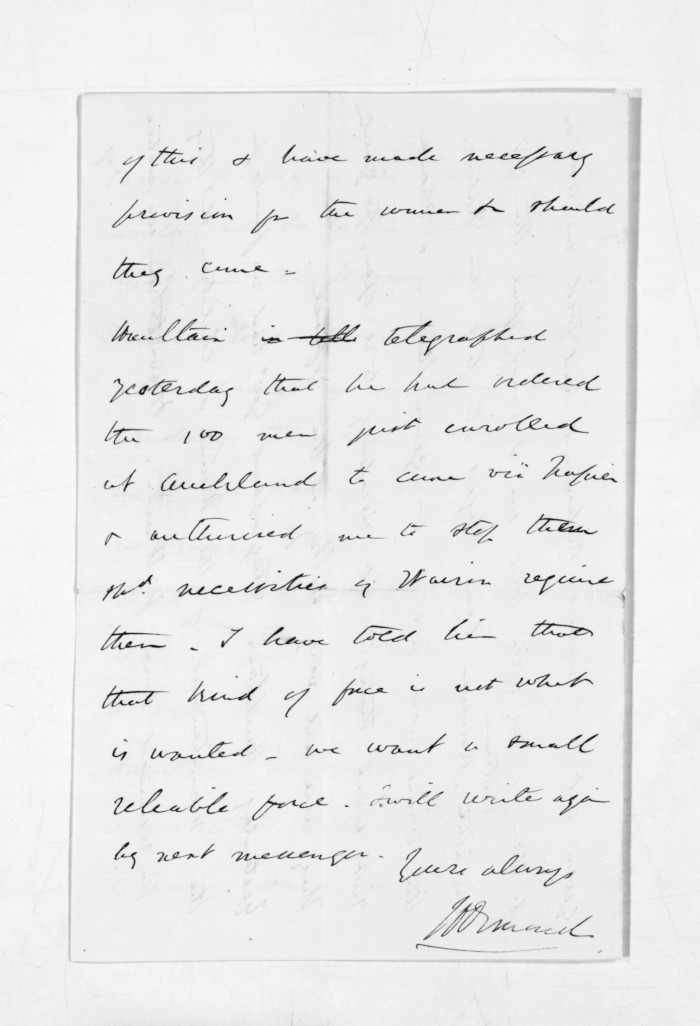 of this & have made necessary
provision for the women &c should
they come -
Haultain is tells telegraphed
yesterday that he had ordered
the 100 men just enrolled
at Auckland to come viâ Napier
& authorised me to stop them
shd. necessities of Wairoa require
them - I have told him that
that kind of force is not what
is wanted - we want a small
reliable force. I will write again
by next messenger. Yours always
JDOrmond